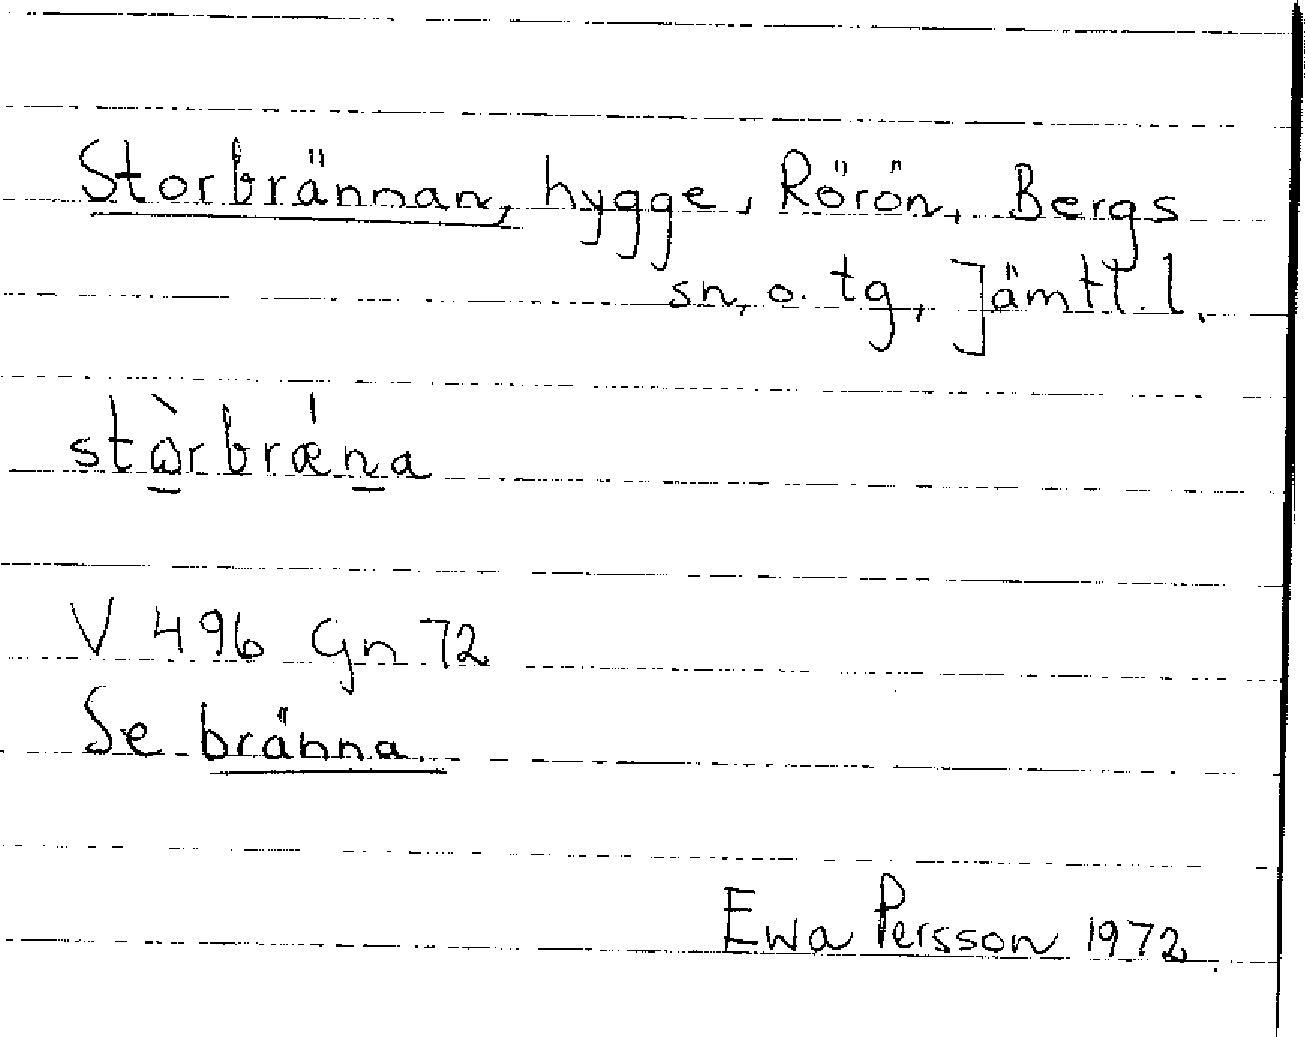 Storbrännan, hygge, Rörön, Bergs
sn, o. tg, Jämtl. l.
stὼ̱rbrǽṉa
V 496 Gn 72
Se bränna.
Ewa Persson 1972.